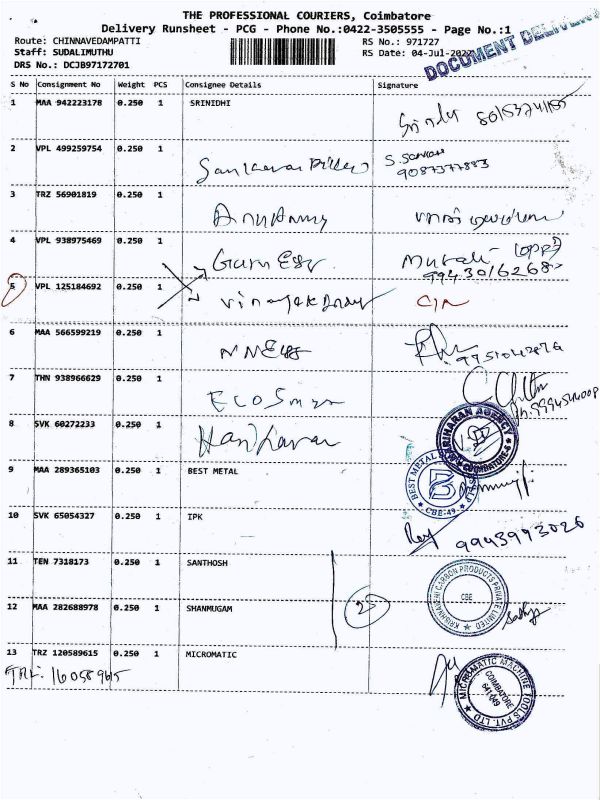 THE PROFESSIONAL COURIERS, Coimbatore
Delivery Runsheet - PCG - Phone No.:0422-3505555 - Page No.:1
Route: CHINNAVEDAMPATTI RS No.: 971727
Staff: SUDALIMUTHU RS Date: 04-Jul-2022
DRS No.: DCJB97172701
DOCUMENT DELIVERY
S No Consignment No Weight PCS Consignee Details Signature
1 MAA 942223178 0.250 1 SRINIDHI
2 VPL 499259754 0.250 1
9087377883
3 TRZ 56901819 0.250 1
4 VPL 938975469 0.250 1 Ganesh Murali
9943016268
5 VPL 125184692 0.250 1
6 MAA 566599219 0.250 1
7 THN 938966629 0.250 1
8 SVK 60272233 0.250 1 Hariharan
HARIHARAN AGENCY
COIMBATORE-6
9 MAA 289365103 0.250 1 BEST METAL
BEST METAL LLP
CBE-49
10 SVK 65054327 0.250 1 IPK
9943993026
11 TEN 7318173 0.250 1 SANTHOSH
KRISHNAVENI CARBON PRODUCTS PRIVATE LIMITED
CBE
12 MAA 282688978 0.250 1 SHANMUGAM
25
13 TRZ 120589615 0.250 1 MICROMATIC
16058965
MICROMATIC MACHINE TOOLS PVT. LTD
COIMBATORE
641 049